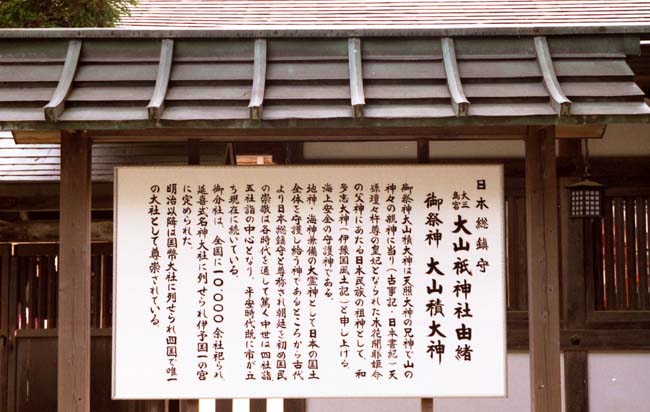 日本総鎮守
大三島宮 大山祇神社由緒
御祭神 大山積大神
御祭神大山積大神は天照大神の兄神で山の
神々の親神に当り（古事記・日本書紀）天
孫瓊々杵尊の皇妃となられた木花開耶姫命
の父神にあたる日本民族の祖神として、和
多志大神（伊豫国風土記）と申し上げる
海上安全の守護神である。
地神・海神兼備の大霊神として日本の国土
全体を守護し給う神であるところから古代
より日本総鎮守と尊称され朝廷を初め国民
の崇敬は各時代を通して篤く中世は四社詣
五社詣の中心となり、平安時代既に市が立
ち現在に続いている。
御分社は、全国に一〇、〇〇〇余社祀られ
延喜式名神大社に列せられ伊予国一の宮
に定められた。
明治以降は国幣大社に列せられ四国で唯一
の大社として尊崇されている。